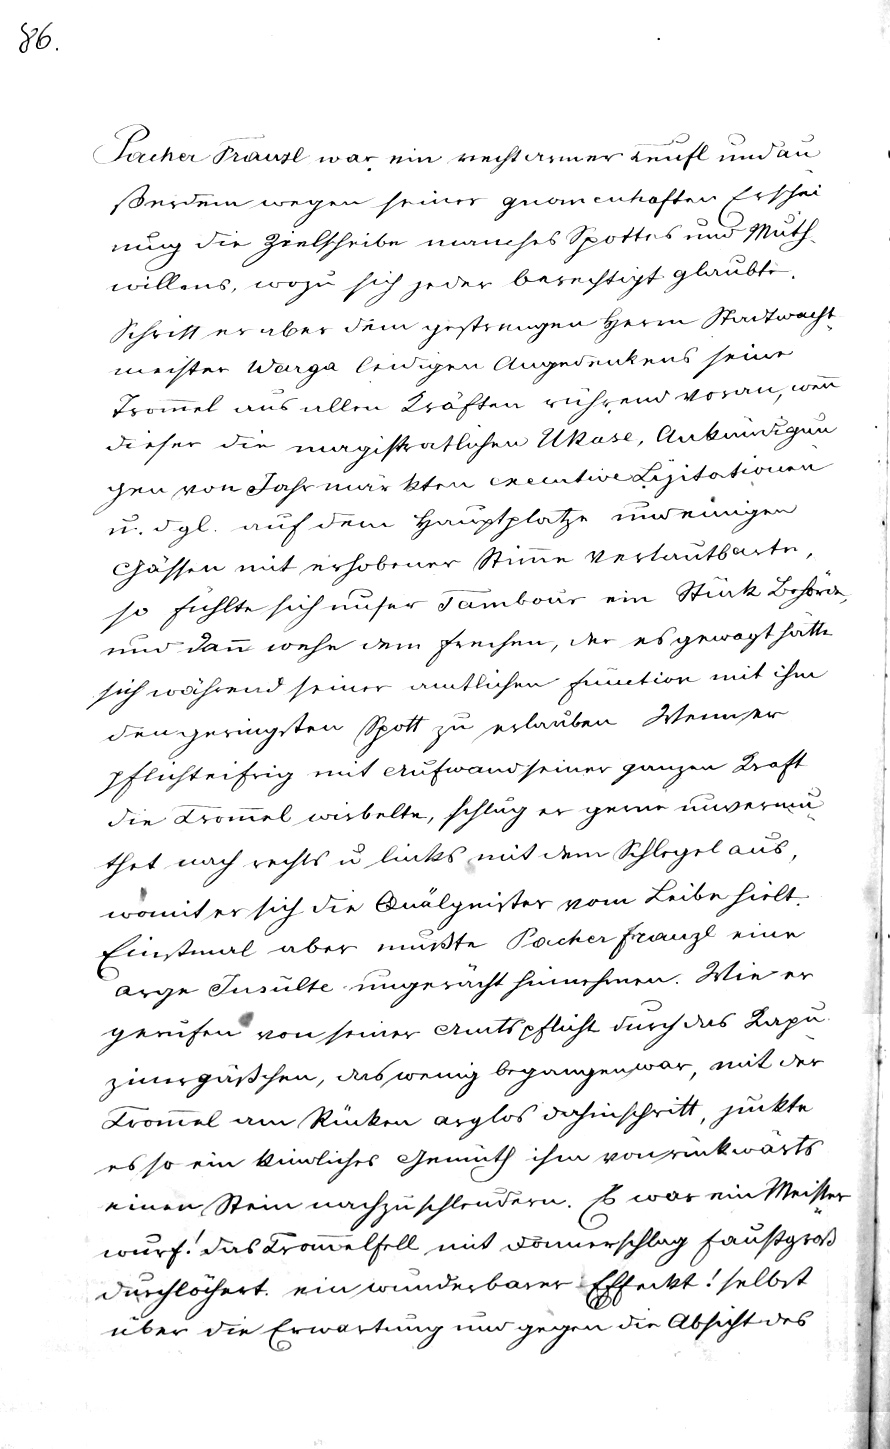 86.
Pacher Franzl war ein recht armer Teufl und au
ßerdem wegen seiner gnomenhaften Erschei
nung die Zielscheibe manches Spottes und Muth-
willens, wozu sich jeder berechtigt glaubte.
Schritt er aber dem gestrengen Herrn Stadtwacht-
meister Warga leidigen Angedenkens seine
Trom̄el aus allen Kräften rührend voran, wen̄
dieser die magistratlichen Ukase, Ankündigun
gen von Jahrmärkten executive Lizitationen
u. dgl. auf dem Hauptplatze und einigen
Gassen mit erhobener Stim̄e verlautbarte,
so fühlte sich unser Tambour ein Stück Behörde,
und dan̄ wehe dem Frechen, der es gewagt hätte
sich während seiner amtlichen Function mit ihm
den geringsten Spott zu erlauben Wenn er
pflichteifrig mit Aufwand seiner ganzen Kraft
die Trom̄el wirbelte, schlug er gerne unvermu-
thet nach rechts u links mit dem Schlegel aus,
womit er sich die Quälgeister vom Leibe hielt.
Einstmal aber mußte Pacher Franzl eine
arge Insulte ungerächt hinnehmen. Wie er
gerufen von seiner Amtspflicht durch das Kapu
zinergäßchen, das wenig begangen war, mit der
Trom̄el am Rücken arglos dahinschritt, juckte
es so ein kindliches Gemüth ihm von rückwärts
einen Stein nachzuschleudern. Es war ein Meister
wurf! das Trom̄elfell mit Donnerschlag faustgroß
durchlöchert. ein wunderbarer Effeckt! selbst
über die Erwartung und gegen die Absicht des